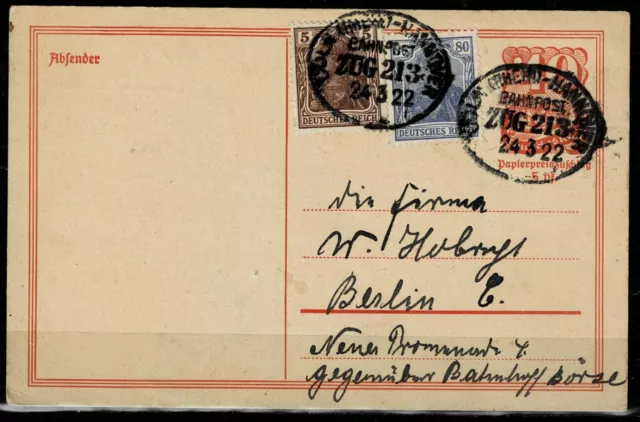 Absender
5
DEUTSCHES REICH
80
DEUTSCHES REICH
(RHEYDT)-HANNOVER
BAHNPOST
ZUG 213
24 3 22
HANNOVER
BAHNPOST
ZUG 213
24 3 22
40
Papierpreiszuschlag
5 Pf.
die Firma
W. Hobrecht
Berlin C.
Neue Promenade
gegenüber Bahnhof Börse